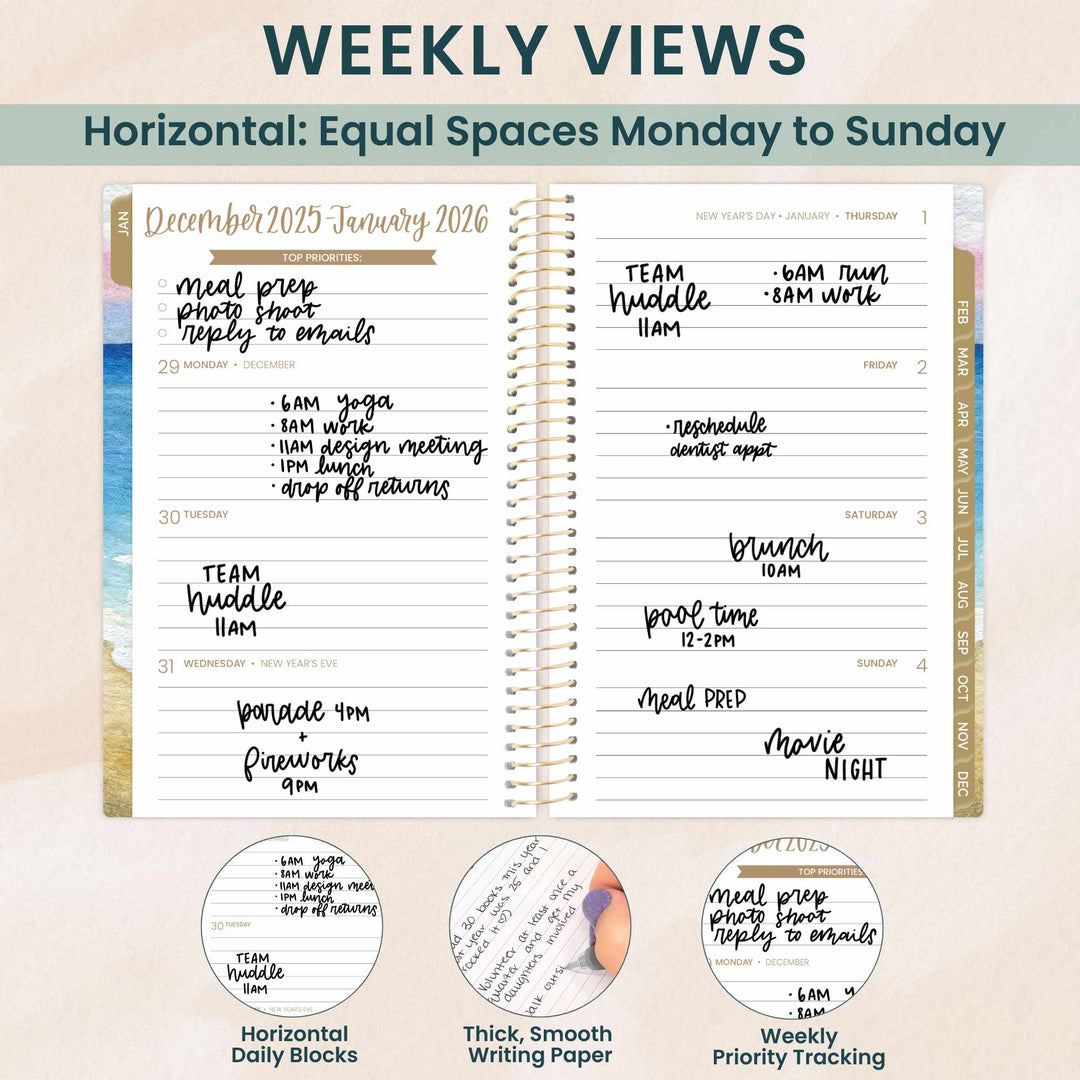 WEEKLY VIEWS
Horizontal: Equal Spaces Monday to Sunday
JAN
December 2025-January 2026
TOP PRIORITIES:
meal prep
photo shoot
reply to emails
29 MONDAY • DECEMBER
• 6AM yoga
• 8AM work
• 11AM design meeting
• 1PM lunch
• drop off returns
30 TUESDAY
TEAM
huddle
11AM
31 WEDNESDAY • NEW YEAR'S EVE
parade 4PM
+
fireworks
9PM
NEW YEAR'S DAY • JANUARY • THURSDAY 1
TEAM
huddle
11AM
• 6AM run
• 8AM work
FRIDAY 2
• reschedule
dentist appt
SATURDAY 3
brunch
10AM
pool time
12-2PM
SUNDAY 4
meal PREP
movie
NIGHT
FEB
MAR
APR
MAY
JUN
JUL
AUG
SEP
OCT
NOV
DEC
• 6AM yoga
• 8AM work
• 11AM design meet
• 1PM lunch
• drop off returns
30 TUESDAY
TEAM
huddle
11AM
NEW YEAR'S EVE
Horizontal
Daily Blocks
30 books this year
year was 25 and I
rocked it
Volunteer at least once a
quarter and get my
daughters involved
Thick, Smooth
Writing Paper
TOP PRIORITIES
meal prep
photo shoot
reply to emails
MONDAY • DECEMBER
• 6AM
• 8AM
Weekly
Priority Tracking